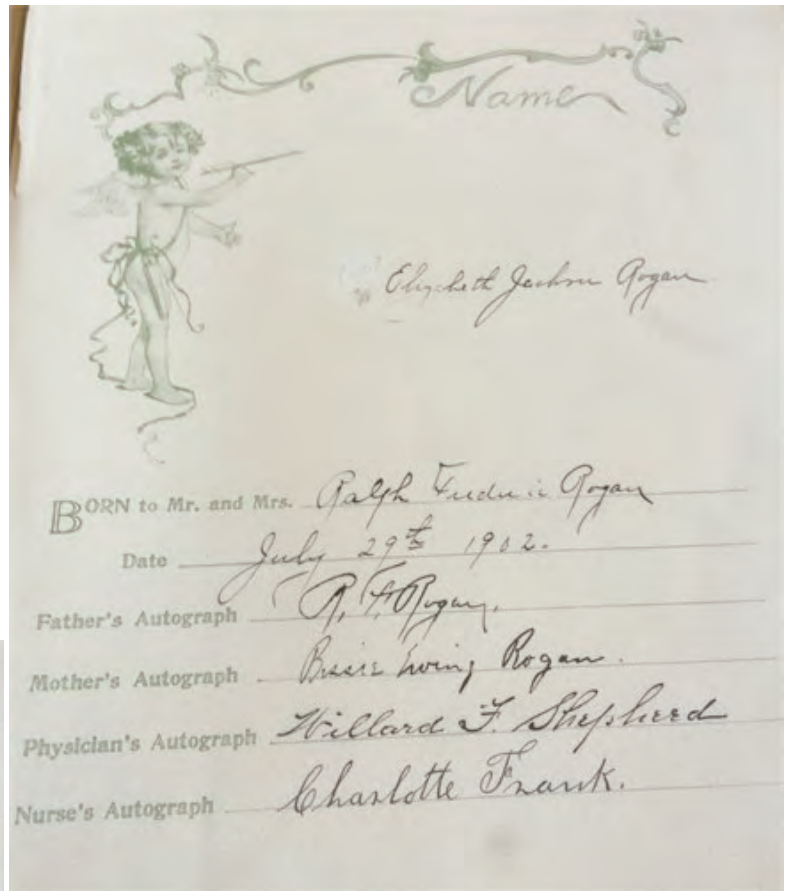 Name
Elizabeth Jackson Rogan
BORN to Mr. and Mrs. Ralph Frederic Rogan
Date July 29th 1902.
Father's Autograph R. F. Rogan.
Mother's Autograph Bessie Ewing Rogan.
Physician's Autograph Willard F. Shepherd
Nurse's Autograph Charlotte Frank.